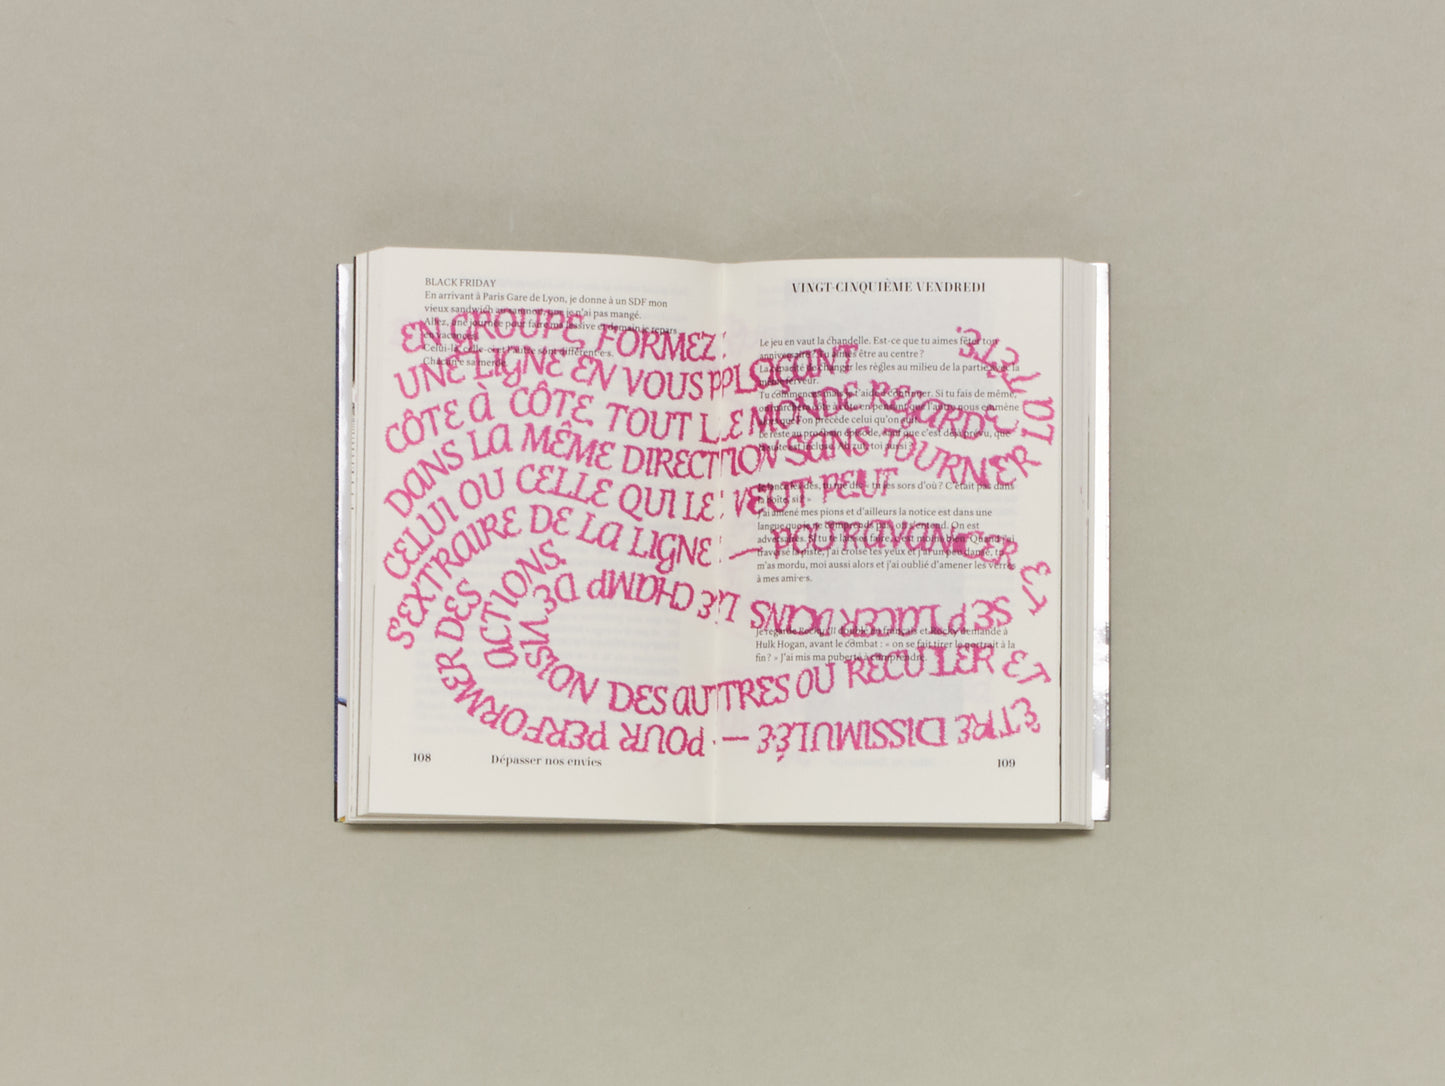 BLACK FRIDAY
En arrivant à Paris Gare de Lyon, je donne à un SDF mon
vieux sandwich au saumon, que je n'ai pas mangé.
Allez, une journée pour faire ma lessive et demain je repars
en vacances.
Celui-là, celle-ci et l'autre sont différent·e·s.
Chacun·e sa merde.
108
Dépasser nos envies
VINGT-CINQUIÈME VENDREDI
Le jeu en vaut la chandelle. Est-ce que tu aimes fêter ton
anniversaire ? Tu aimes être au centre ?
La capacité de changer les règles au milieu de la partie avec la
même ferveur.
Tu commences mais t'aider continuer. Si tu fais de même,
on marchera côte à côte en pensant que l'autre nous emmène
alors que l'on précède celui qu'on suit.
Le reste au prochain épisode, sauf que c'est déjà prévu, que
la suite est incluse. Ah zut, toi aussi ?
Je lance les dés, tu me dis « tu les sors d'où ? C'était pas dans
la boîte, si ? »
J'ai amené mes pions et d'ailleurs la notice est dans une
langue que je ne comprends pas, on s'entend. On est
adversaires. Si tu te laisses faire, c'est moins bien. Quand j'ai
traversé la piste, j'ai croisé tes yeux et j'ai un peu dansé, tu
m'as mordu, moi aussi alors et j'ai oublié d'amener les verres
à mes ami·e·s.
Je regarde Rocky III doublé en français et Rocky demande à
Hulk Hogan, avant le combat : « on se fait tirer le portrait à la
fin ? » J'ai mis ma puberté à comprendre.
109
EN GROUPE, FORMEZ
UNE LIGNE EN VOUS PLAÇANT
CÔTE À CÔTE. TOUT LE MONDE REGARDE
DANS LA MÊME DIRECTION SANS TOURNER LA TÊTE.
CELUI OU CELLE QUI LE VEUT PEUT
S'EXTRAIRE DE LA LIGNE — POUR AVANCER ET
SE PLACER DANS LE CHAMP DE VISION DES AUTRES OU RECULER ET
ÊTRE DISSIMULÉE — POUR PERFORMER DES
ACTIONS.